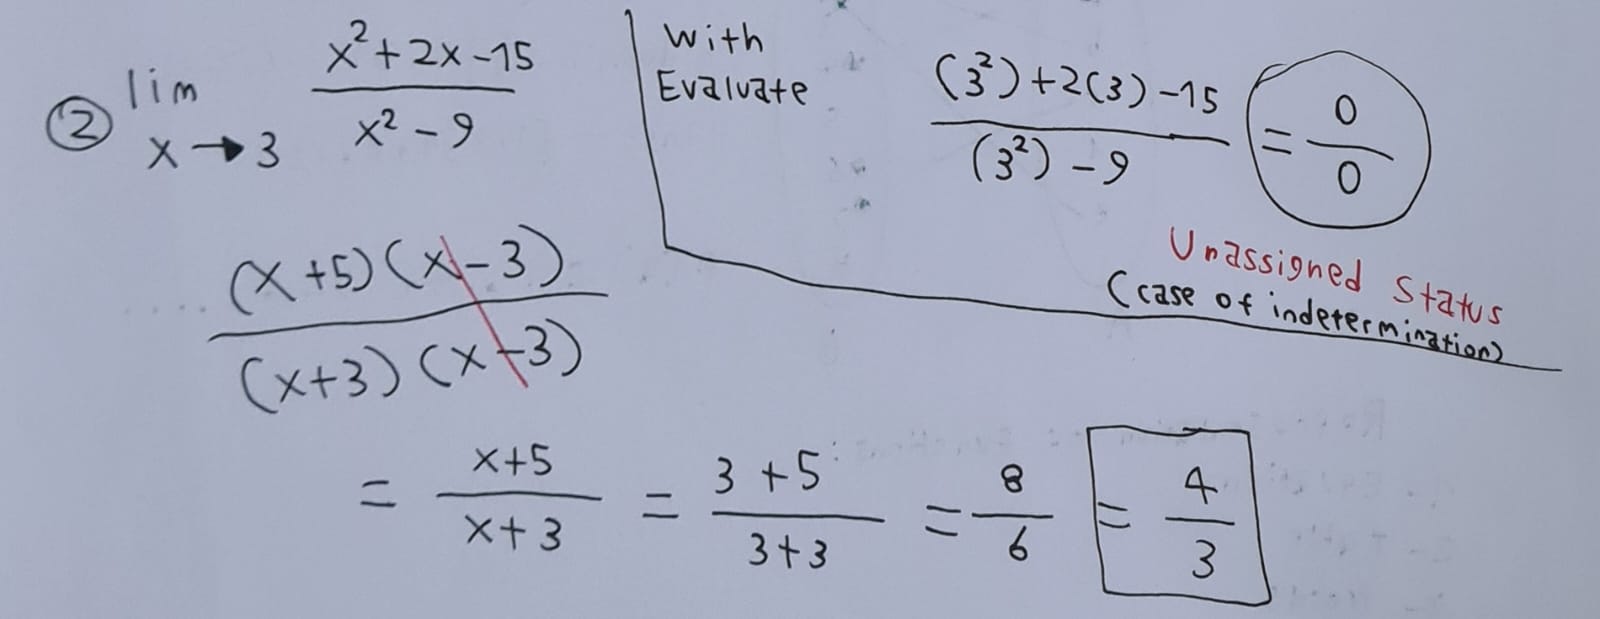 ② lim x→3 (x²+2x-15)/(x²-9)
With
Evaluate
((3²)+2(3)-15)/((3²)-9) = 0/0
Unassigned Status
(case of indetermination)
((x+5)(x-3))/((x+3)(x-3))
= (x+5)/(x+3) = (3+5)/(3+3) = 8/6 = 4/3